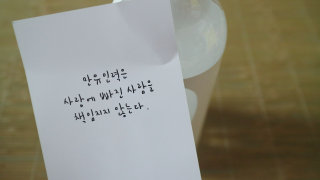 만유인력은
사랑에 빠진 사람을
책임지지 않는다.